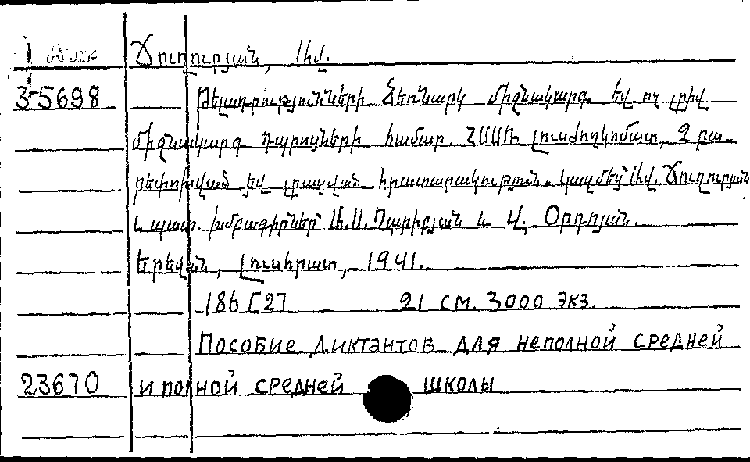 Ճուղուրյան, Խվ.
3-5698 Թելադրությունների ձեռնարկ միջնակարգ եվ ոչ լրիվ
միջնակարգ դպրոցների համար. ՀՍՍՌ լուսժողկոմատ, 2 բա-
րեփոխված եվ լրացված հրատարակություն. կազմեց՝ Խվ. Ճուղուրյան
և պատ. խմբագիրներ՝ Ա. Ղարիբյան և Վ. Օրդոյան.
Երեվան, Լուսհրատ, 1941.
186 [2] 21 см. 3000 экз.
Пособие диктантов для неполной средней
23670 и полной средней школы